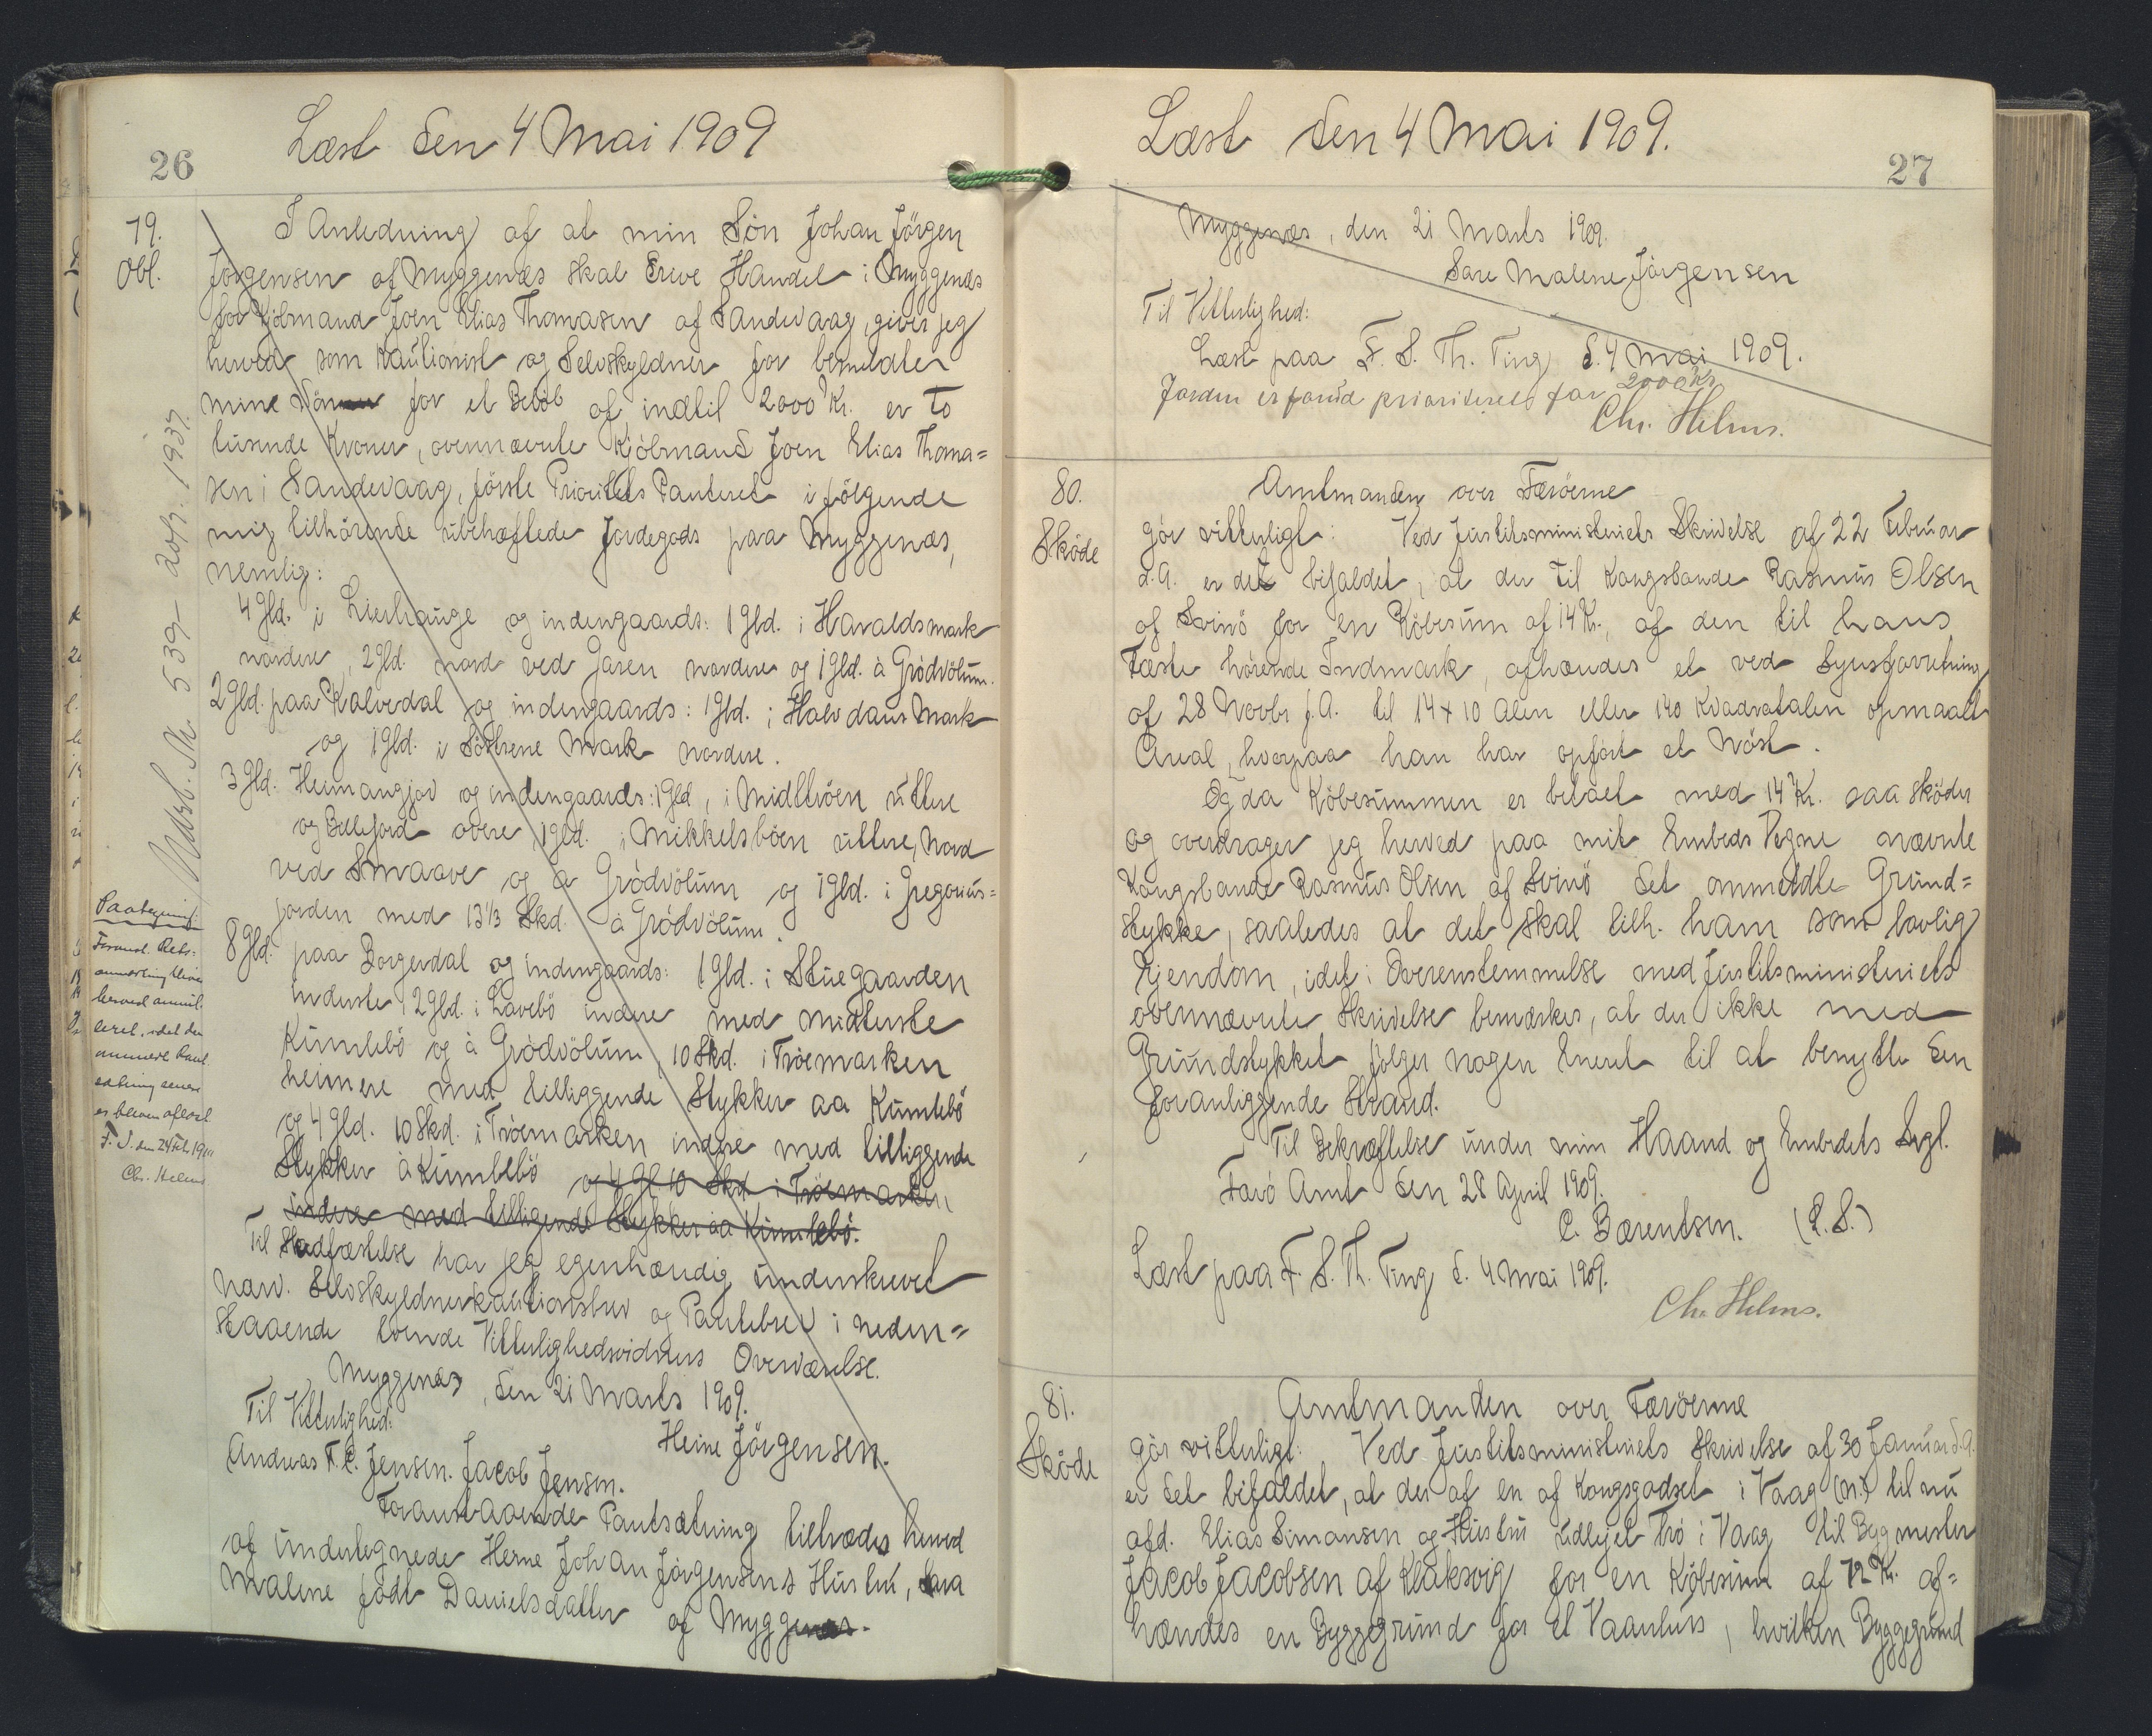 26
Læst den 4 Mai 1909
79.
Obl.
I Anledning af at min Sön Johan Jörgen
Jörgensen af Myggenæs skal drive Handel i Myggenæs
for Kjöbmand Joen Elias Thomasen af Sandevaag, giver jeg
herved som Kautionist og Selvskyldner for bemeldte
mine Sön for et Belöb af indtil 2000 Kr. er to
tusende Kroner, ovennævnte Kjöbmand Joen Elias Thoma=
sen i Sandevaag, förste Prioritets Panteret i fölgende
mig tilhörende ubehæftede Jordegods paa Myggenæs,
nemlig:
4 Gld. i Lierhauge og indengaards: 1 Gld. i Haraldsmark
nordere, 2 Gld. nord ved Garen nordere og 1 Gld. à Gródvölum.
2 Gld. paa Kalvedal og indengaards: 1 Gld. i Halvdans Mark
og 1 Gld. i Söltrene Mark nordere.
3 Gld. Heimangjov og indengaards: 1 Gld, i Midltröen uttere
og Billefjord overe, 1 Gld. i Mikkelsböen uttere, Nord
ved Smaave og a Gródvölum og 1 Gld. i Gregorius=
jorden med 13 1/3 Skd. à Gródvölum.
8 Gld. paa Borgerdal og indengaards: 1 Gld. i Stuegaarden
inderste, 2 Gld. i Lavebö indere med midterste
Kumlebö og à Gródvölum, 10 Skd. i Tröemarken
heimere med tilliggende Stykker aa Kumlebö
og 4 Gld. 10 Skd. i Tröemarken indere med tilliggende
Stykker à Kumlebö og 4 Gl 10 Skd i Tröemarken
indere med tilligende Stykker àa Kumlebö.
Til Stadfæstelse har jeg egenhændig underskrevet
nærv. Selvskyldnerkautionsbrev og Pantebrev i neden=
staaende tvende Vitterlighedsvidners Overværelse.
Myggenæs, den 21 Marts 1909.
Til Vitterlighed:
Heine Jörgensen.
Andreas F. C. Jensen. Jacob Jensen.
Foranstaaende Pantsætning tiltrædes herved
af undertegnede Heine Johan Jörgensens Hustru, Sara
Malene födt Danielsdatter af Myggenæs.
Udsl. Sk 539 20/7. 1937.
Paategning:
Foranst. Rets=
anmærkning bliver
herved annul=
leret, idet den
ommeldte Pant
sætning senere
er bleven aflæst
F. S. den 24 Feb. 19
Chr. Helms
27
Læst den 4 Mai 1909.
Myggenæs, den 21 Marts 1909.
Sare Malene Jörgensen
Til Vitterlighed:
Læst paa F. S. Th. Ting d. 4 Mai 1909.
Jorden er forud prioriteret for 2000 Kr
Chr. Helms.
80.
Sköde
Amtmanden over Færöerne
gör vitterligt: Ved Justitsministeriets Skrivelse af 22 Februar
d. A. er det bifaldet, at der til Kongsbonde Rasmus Olsen
af Svinö for en Köbesum af 14 Kr., af den til hans
Fæste hörende Indmark, afhændes et ved Synsforretning
af 28 Novbr f. A. til 14 x 10 Alen eller 140 Kvadratalen opmaalt
Areal, hvorpaa han har opfört et Nöst.
Og da Köbesummen er betalt med 14 Kr. saa sköder
og overdrager jeg herved paa mit Embeds Vegne nævnte
Kongsbonde Rasmus Olsen af Svinö det ommeldte Grund=
stykke, saaledes at det skal tilh. ham som lovlig
Ejendom, idet i Overenstemmelse med Justitsministeriets
ovennævnte Skrivelse bemærkes, at der ikke med
Grundstykket fölger nogen Eneret til at benytte den
foranliggende Strand.
Til Bekræftelse under min Haand og Embedets Segl.
Færö Amt den 28 April 1909.
C. Bærentsen. (L. S.)
Læst paa F. S. Th. Ting d. 4 Mai 1909.
Chr. Helms.
81.
Sköde
Amtmanden over Færöerne
gör vitterligt: Ved Justitsministeriets Skrivelse af 30 Januar d. A.
er det bifaldet, at der af en af Kongsgodset i Vaag (N.) til nu
afd. Elias Simonsen og Hustru udlejet Trö i Vaag til Bygmester
Jacob Jacobsen af Klaksvig for en Köbesum af 72 Kr. af=
hændes en Byggegrund for et Vaanhus, hvilken Byggegrund